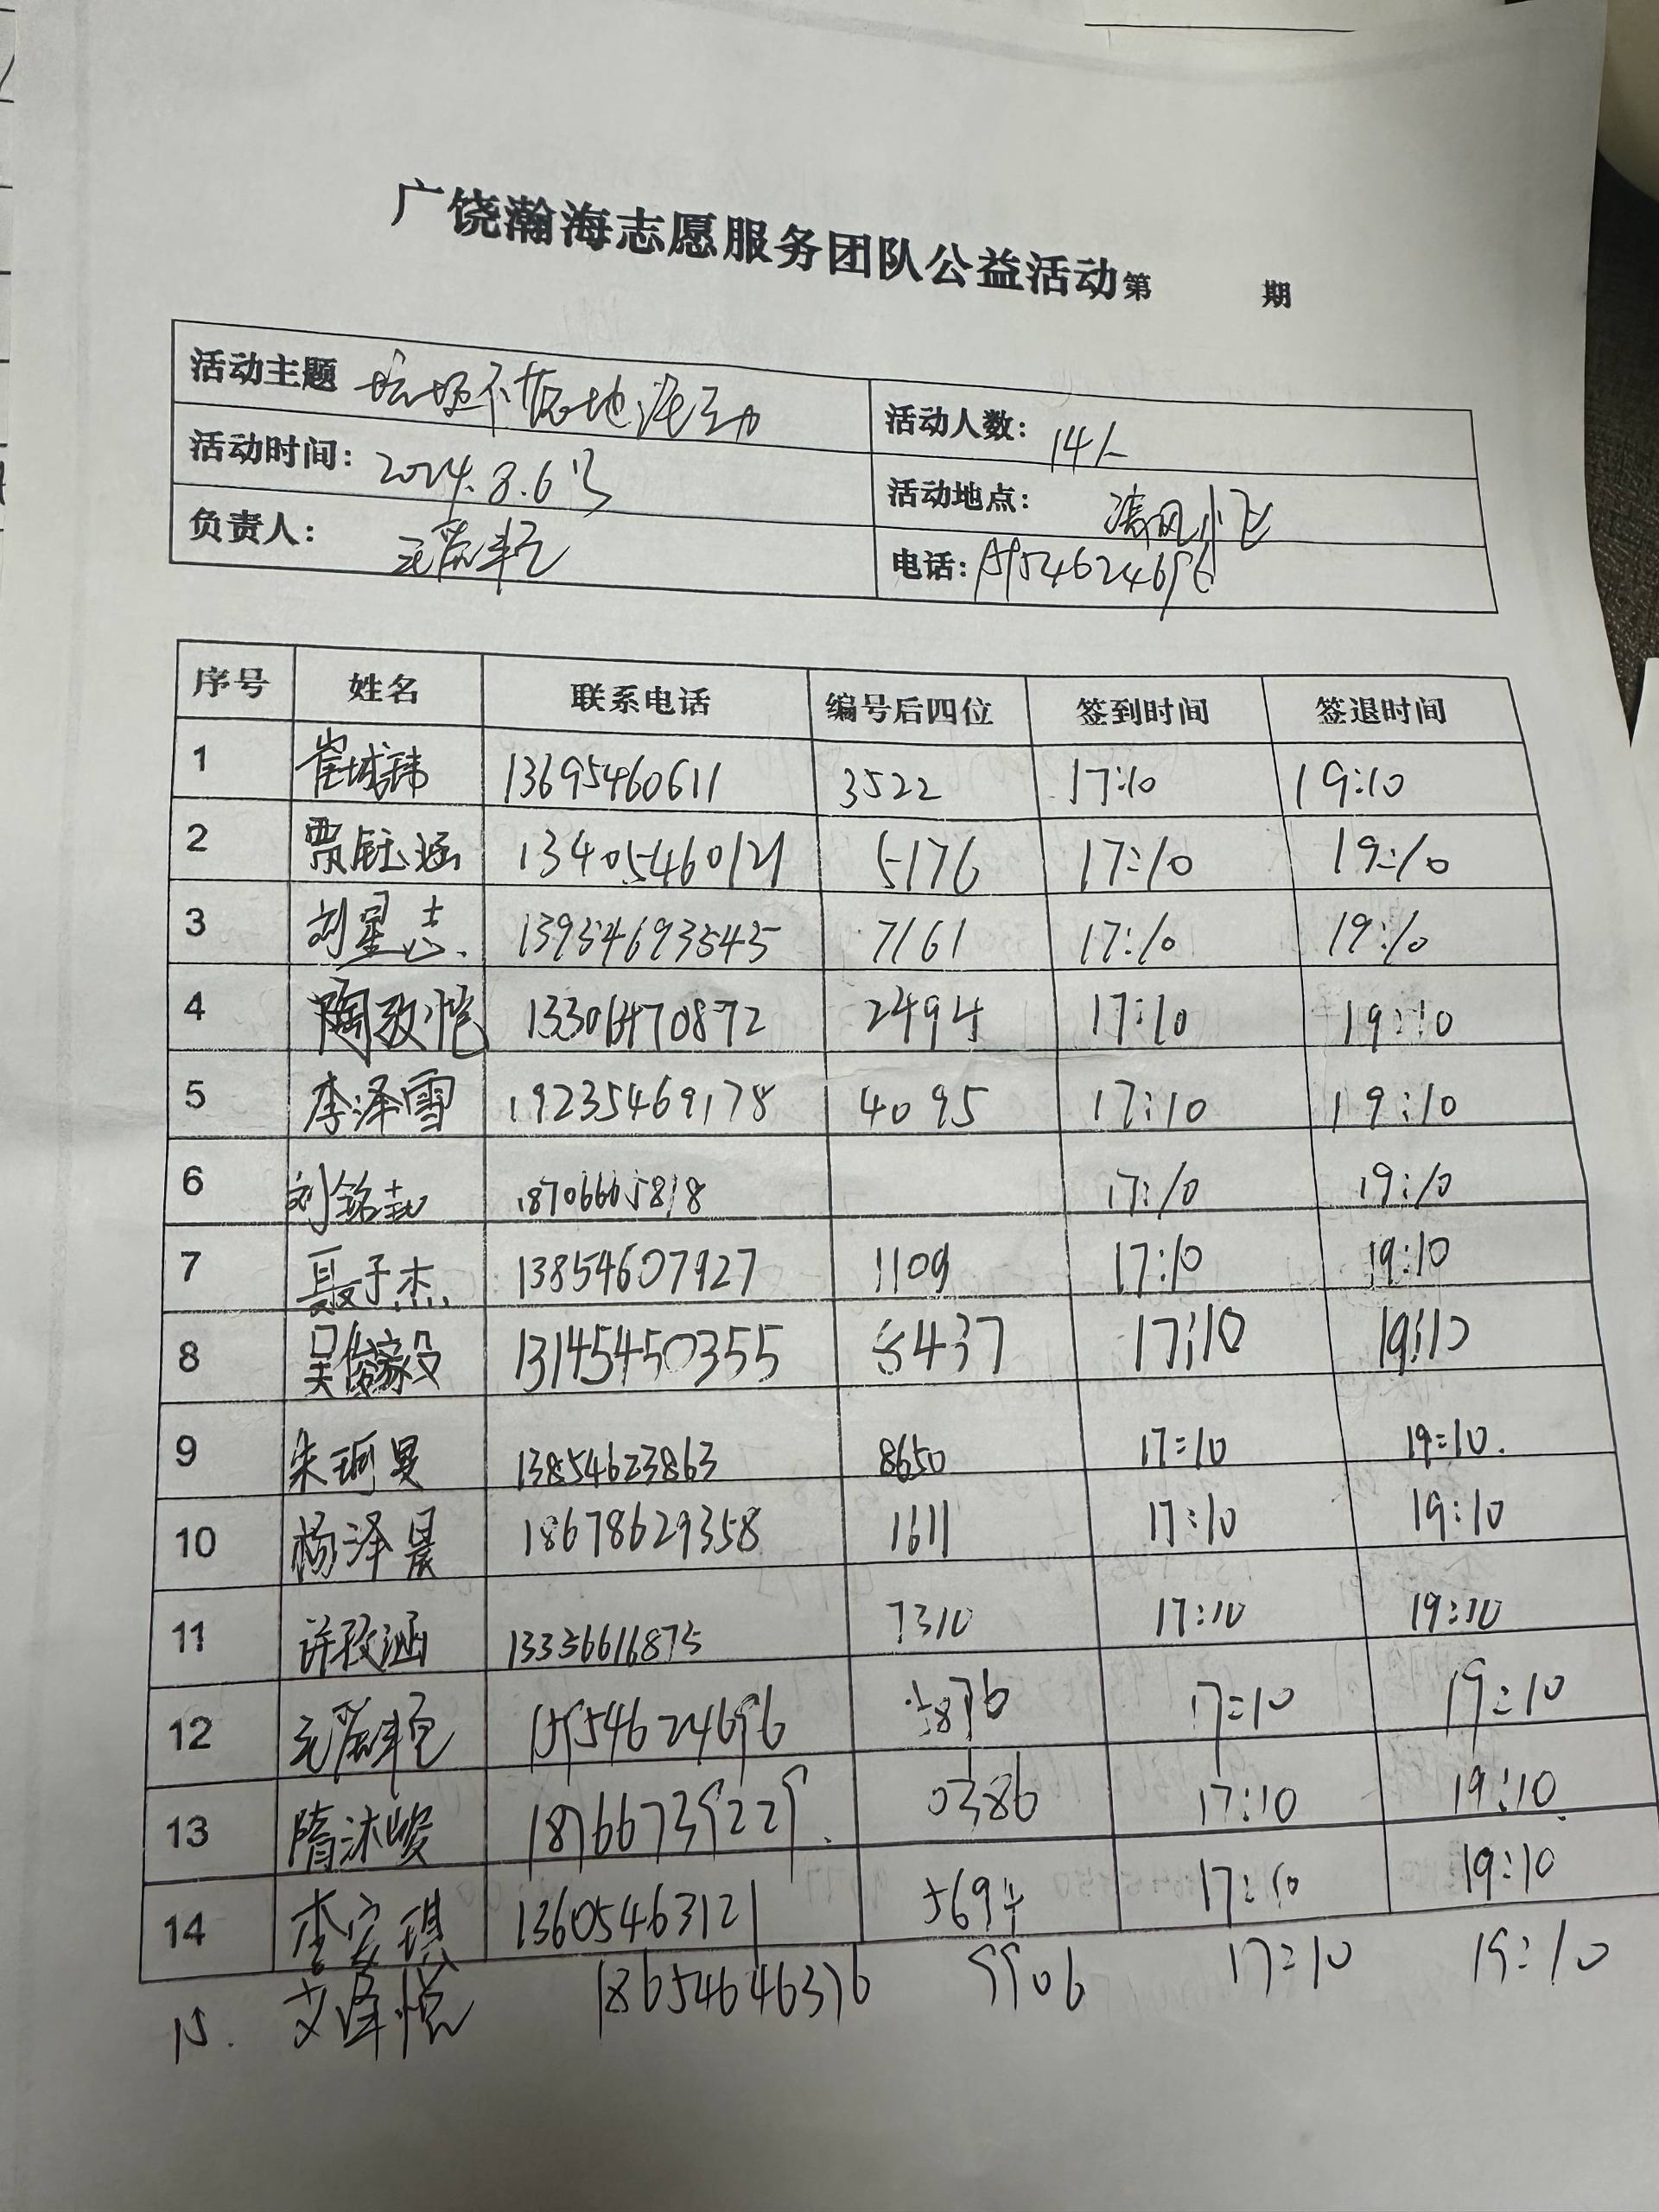 广饶瀚海志愿服务团队公益活动第 期
活动主题 垃圾不落地活动 活动人数: 14人
活动时间: 2024.8.6号 活动地点: 清风小区
负责人: 电话: 15954624696
序号 姓名 联系电话 编号后四位 签到时间 签退时间
1 崔城玮 13695460611 3522 17:10 19:10
2 贾钰涵 13405460121 5176 17:10 19:10
3 刘星志 13954693545 7161 17:10 19:10
4 陶致恺 13306470872 2494 17:10 19:10
5 李泽雪 19235469178 4095 17:10 19:10
6 刘铭 18706605818 17:10 19:10
7 聂子杰 13854607927 1109 17:10 19:10
8 吴俊毅 13145450355 5437 17:10 19:10
9 朱珂旻 13854623863 8650 17:10 19:10.
10 杨泽晨 18678629358 1611 17:10 19:10
11 许玫涵 13336616875 7310 17:10 19:10
12 15954624696 5876 17:10 19:10
13 隋沐峻 18766739229. 0386 17:10 19:10
14 李宏琪 13605463121 5694 17:10 19:10
15. 艾泽悦 18654646376 9906 17:10 19:10